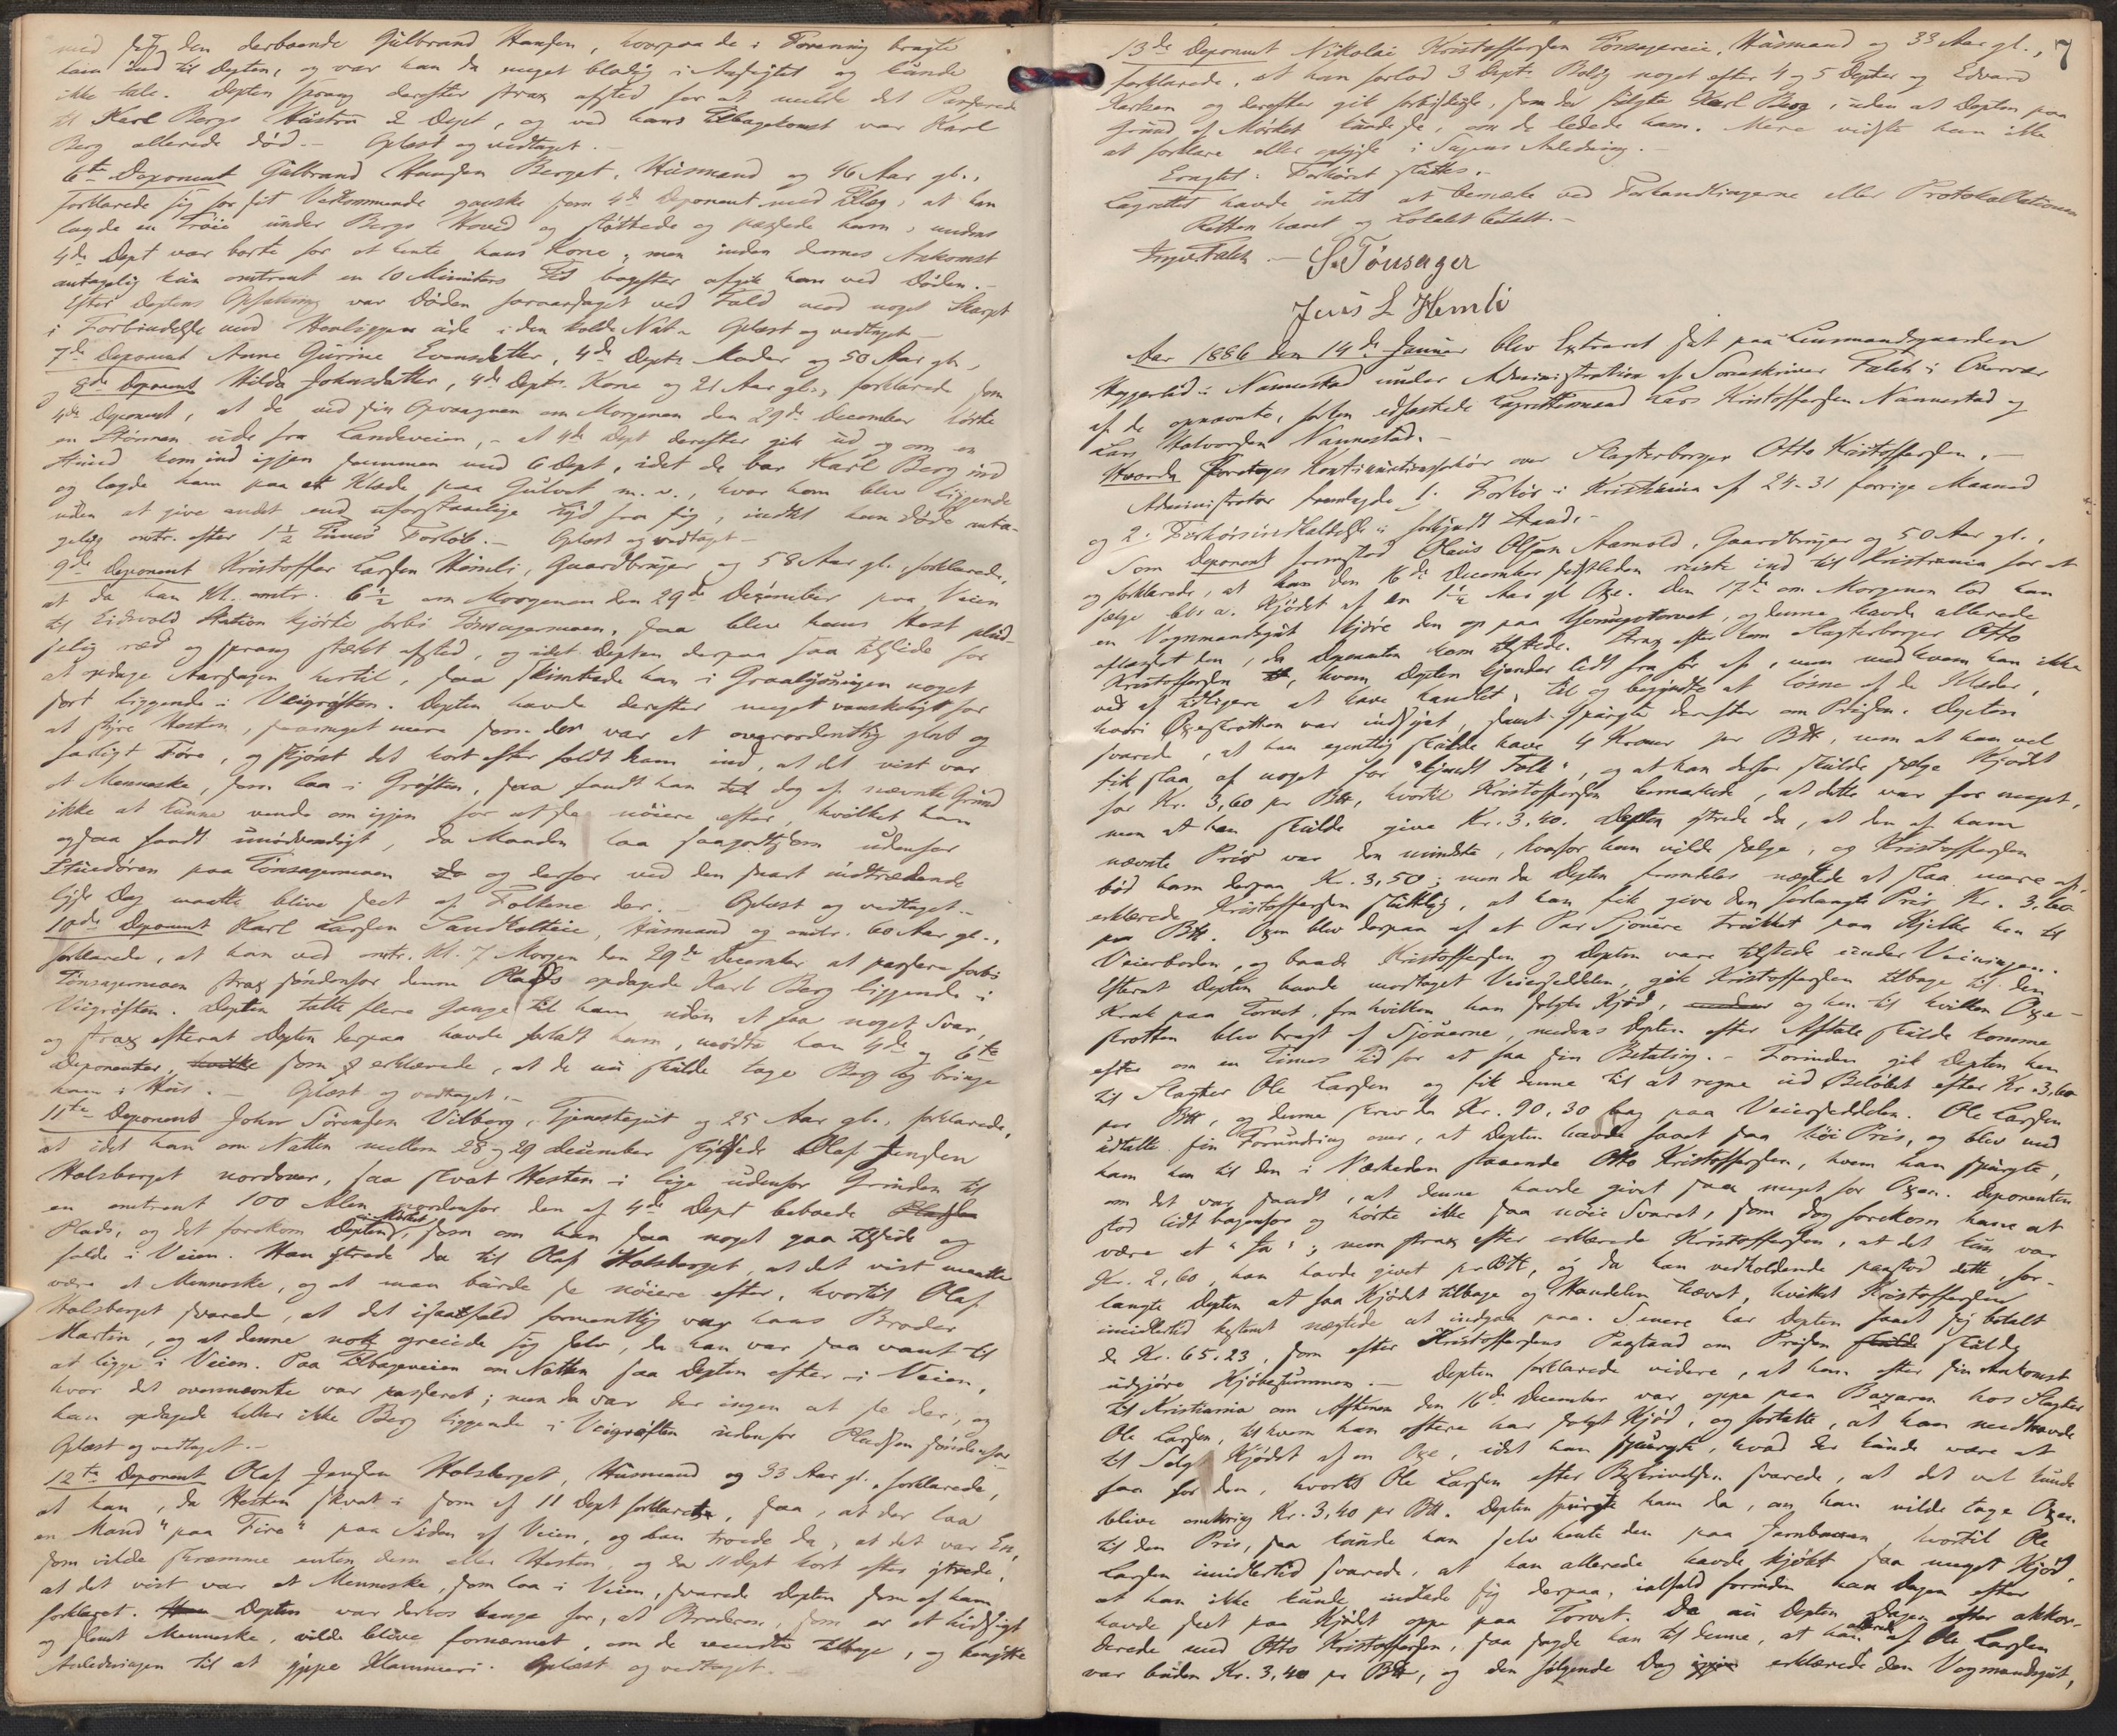 med sig den derboende Gulbrand Hansen, hvorpaa de i Forening bragte
ham ind til Depten, og var han da meget blodig i Ansigtet og kunde
ikke tale. Depten sprang derefter strax afsted for at melde det Passerede
til Karl Bergs Hustru 2 Dept, og ved hans Tilbagekomst var Karl
Berg allerede död. - Oplæst og vedtaget. -
6te Deponent Gulbrand Hansen Berget, Husmand og 46 Aar gl.,
forklarede sig for sit Vedkommende ganske som 4de Deponent med Tillæg, at han
lagde en Tröie under Bergs Hoved og støttede og passede ham, medens
4de Dept var borte for at hente hans Kone; men inden dennes Ankomst
antagelig kun omtrent en 10 Minuters Tid bagefter afgik han ved Döden. -
Efter Deptens Opfatning var Döden foraarsaget ved Fald mod noget Skarpt
i Forbindelse med Henliggen ude i den kolde Nat. - Oplæst og vedtaget. -
7de Deponent Anne Gurine Evensdatter, 4de Depts Moder og 50 Aar gl.,
og 8de Deponent Hilda Johnsdatter, 4de Depts Kone og 21 Aar gl., forklarede som
4de Deponent, at de ved sin Opvaagnen om Morgenen den 29de December hørte
en Stönnen ude fra Landeveien, - at 4de Dept derefter gik ud og om en
Stund kom ind igjen sammen med 6 Dept, idet de bar Karl Berg ind
og lagde ham paa et Klæde paa Gulvet m. v., hvor han blev liggende
uden at give andet end uforstaaelige Lyd fra sig, indtil han döde anta-
gelig omtr. efter 1½ Times Forløb. - Oplæst og vedtaget. -
9de Deponent Kristoffer Larsen Hemli, Gaardbruger og 58 Aar gl., forklarede,
at da han Kl. omtr. 6½ om Morgenen den 29de December paa Veien
til Eidsvold Station kjörte forbi Tönsagermoen, saa blev hans Hest plud-
selig ræd og sprang stækt afsted, og idet Depten derpaa saa tilside for
at opdage Aarsagen hertil, saa skimtede han i Graalysningen noget
sort liggende i Veigröften. Depten havde derefter meget vanskeligt for
at styre Hesten, saameget mere som der var et overordentlig glat og
farligt Före, og skjönt det kort efter faldt ham ind, at det vist var
et Menneske, som laa i Gröften, saa fandt han dog af nævnte Grund
ikke at kunne vende om igjen for at se nöiere efter, hvilket han
ogsaa fandt unödvendigt, da Manden laa saagodtsom udenfor
Stuedören paa Tönsagermoen og derfor ved den snart indtrædende
lyse Dag maatte blive seet af Folkene der. - Oplæst og vedtaget. -
10de Deponent Karl Larsen Sandholteie, Husmand og omtr. 60 Aar gl.,
forklarede, at han ved omtr. Kl. 7 Morgen den 29de December at passere forbi
Tönsagermoen strax söndenfor denne Plads opdagede Karl Berg liggende i
Veigröften. Depten talte flere Gange til ham uden at faa noget Svar,
og strax efterat Depten derpaa havde forladt ham, mödte han 4de og 6te
Deponenter, som erklærede, at de nu skulde tage Berg og bringe
ham i Hus. - Oplæst og vedtaget. -
11te Deponent Johan Sörensen Vilberg, Tjenestegut og 25 Aar gl., forklarede,
at idet han om Natten mellem 28 og 29 December skydsede Olaf Jensen
Holsberget nordover, saa skvat Hesten i lige udenfor Grinden til
en omtrent 100 Alen nordenfor den af 4de Dept beboede
Plads, og det forekom Depten i Mörket, som om han saa noget gaa tilside og
falde i Veien. Han ytrede da til Olaf Holsberget, at det vist maatte
være et Menneske, og at man burde se nöiere efter, hvortil Olaf
Holsberget svarede, at det isaafald formentlig var hans Broder
Martin, og at denne nok greiede sig selv, da han var saa vant til
at ligge i Veien. Paa Tilbageveien om Natten saa Depten efter i Veien,
hvor det ovennævnte var passeret; men da var der ingen at se der, og
han opdagede heller ikke Berg liggende i Veigröften udenfor Pladsen söndenfor.
Oplæst og vedtaget. -
12te Deponent Olaf Jensen Holsberget, Husmand og 33 Aar gl., forklarede,
at han, da Hesten skvat i som af 11 Dept forklaret, saa, at der laa
en Mand "paa Fire" paa Siden af Veien, og han troede da, at det var En,
som vilde skræmme enten dem eller Hesten, og da 11 Dept kort efter ytrede,
at det vist var et Menneske, som laa i Veien, svarede Depten som af ham
forklaret. Depten var derhos bange for, at Broderen, som er et hidsigt
og slemt Menneske, vilde blive fornærmet, om de vendte tilbage, og benytte
Anledningen til at yppe Klammeri. Oplæst og vedtaget. -
7
13de Deponent Nikolai Kristoffersen Tönsagereie, Husmand og 33 Aar gl.,
forklarede, at han forlod 3 Depts Bolig noget efter 4 og 5 Depter og Edvard
og derefter gik forbi, som der fulgte Karl Berg, uden at Depten paa
Grund af Mörket kunde se, om de ledede ham. Mere vidste han ikke
at forklare eller oplyse i Sagens Anledning. -
Eragtet: Forhöret sluttes. -
Lagrettet havde intet at bemærke ved Forhandlingerne eller Protokollationen
Retten hævet og Lokalet betalt. -
Falch. - S. Tönsager
Jens L Hemli
Aar 1886 den 14de Januar blev Extraret sat paa Lensmandsgaarden
i Nannestad under Administration af Sorenskriver Falch i Overvær
af de opnævnte, forlen edfæstede Lagrettesmænd Lars Kristoffersen Nannestad og
Lars Halvorsen Nannestad. -
Hvorda foretoges Kontinuationsforhör over Slagterborger Otto Kristoffersen. -
Administrator fremlagde 1. Forhör i Kristiania af 24-31 forrige Maaned
og 2. Forhörsindkaldelse i forkyndt Stand. -
Som Deponent fremstod Olaus Olsen Aamold, Gaardbruger og 50 Aar gl.,
og forklarede, at han den 16de December sidstleden reiste ind til Kristiania for at
sælge bl. a. Kjödet af en 1½ Aar gl Oxe. Den 17de om Morgenen lod han
en Vognmandsgut kjöre den op paa Youngstorvet, og denne havde allerede
aflæsset den, da Deponenten kom tilstede. Strax efter kom Slagterborger Otto
Kristoffersen, hvem Depten kjender lidt fra för af, men med hvem han ikke
ved af tidligere at have handlet, til og begyndte at lösne af de Klæder,
hvori Oxeskrotten var indsyet, samt spurgte derefter om Prisen. Depten
svarede, at han egentlig skulde have 4 Kroner pr B℔, men at han vel
fik slaa af noget for "kjendt Folk", og at han derfor skulde sælge Kjödet
for Kr. 3,60 pr B℔, hvortil Kristoffersen bemærkede, at dette var for meget,
men at han skulde give Kr. 3.40. Depten ytrede da, at den af ham
nævnte Pris var den mindste, hvorfor han vilde sælge, og Kristoffersen
böd ham derpaa Kr. 3,50; men da Depten fremdeles nægtede at slaa mere af,
erklærede Kristoffersen sluttelig, at han fik give den forlangte Pris, Kr. 3.60
pr B℔. Oxen blev derpaa af et Par Sjouere trukket paa Kjælke hen til
Veierboden, og baade Kristoffersen og Depten vare tilstede under Veiningen.
Efterat Depten havde modtaget Veierseddelen, gik Kristoffersen tilbage til den
Krak paa Torvet, fra hvilken han solgte Kjöd, og hen til hvilken Oxe-
skrotten blev bragt af Sjouerne, medens Depten efter Aftale skulde komme
efter om en Times Tid for at faa sin Betaling. - Forinden gik Depten hen
til Slagter Ole Larsen og fik denne til at regne ud Belöbet efter Kr. 3,60
pr B℔, og denne skrev da Kr. 90,30 bag paa Veierseddelen. Ole Larsen
udtalte sin Forundring over, at Depten havde faaet saa höi Pris, og blev med
ham hen til den i Nærheden staaende Otto Kristoffersen, hvem han spurgte,
om det var sandt, at denne havde givet saa meget for Oxen. Deponenten
stod lidt bagenfor og hörte ikke saa nöie Svaret, som dog forekom ham at
være et "Ja"; men strax efter erklærede Kristoffersen, at det kun var
Kr. 2,60, han havde givet pr B℔, og da han vedholdende paastod dette, for-
langte Depten at faa Kjödet tilbage og Handelen hævet, hvilket Kristoffersen
imidlertid bestemt nægtede at indgaa paa. Senere har Depten faaet sig betalt
de Kr. 65.23, som efter Kristoffersens Paastand om Prisen skulde
udgjöre Kjöbesummen. - Depten forklarede videre, at han efter sin Ankomst
til Kristiania om Aftenen den 16de December var oppe paa Bazaren hos Slagter
Ole Larsen, til hvem han oftere har solgt Kjöd, og fortalte, at han medhavde
til Salg Kjödet af en Oxe, idet han spurgte, hvad der kunde være at
faa for den, hvortil Ole Larsen efter Beskrivelsen svarede, at det vel kunde
blive omkring Kr. 3,40 pr B℔. Depten spurgte ham da, om han vilde tage Oxen
til den Pris, saa kunde han selv hente den paa Jernbanen, hvortil Ole
Larsen imidlertid svarede, at han allerede havde kjöbt saa meget Kjöd,
at han ikke kunde indlade sig derpaa, ialfald forinden han Dagen efter
havde seet paa Kjödet oppe paa Torvet. Da nu Depten Dagen efter akkor-
derede med Otto Kristoffersen, saa sagde han til denne, at han allerede af Ole Larsen
var buden Kr. 3,40 pr B℔, og den fölgende Dag erklærede den Vogmandsgut,